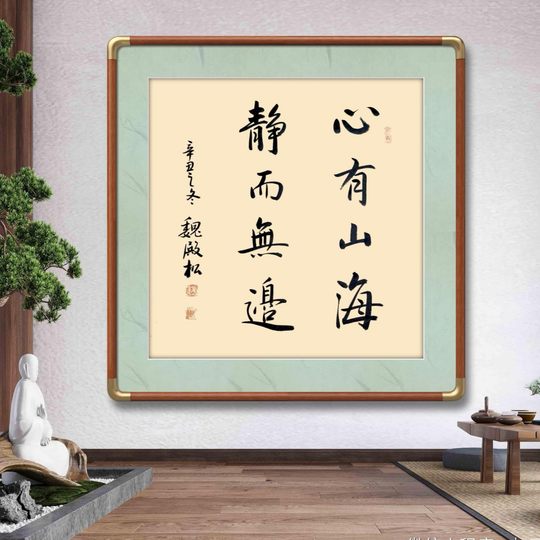 心有山海
静而無邊
辛丑之冬 魏殿松